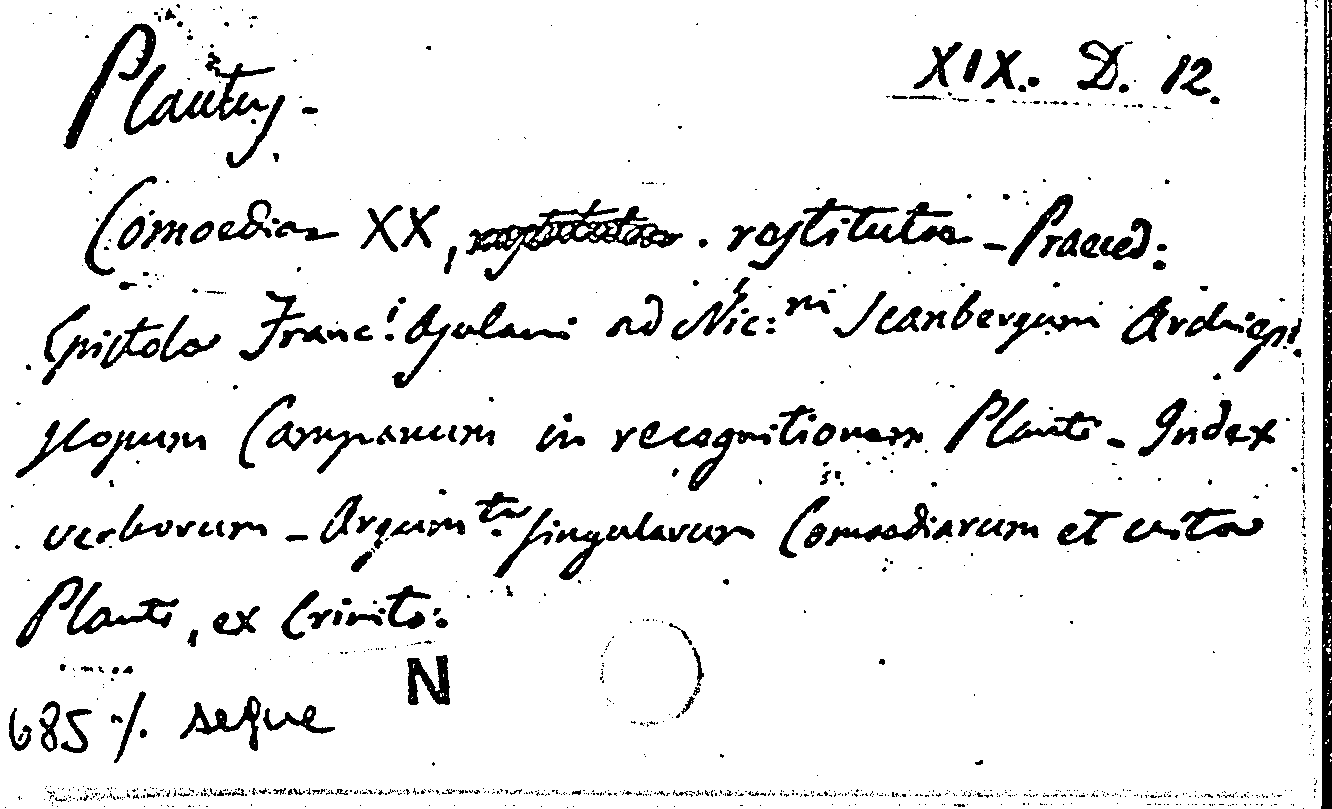 Plautus - XIX. D. 12.
Comoediae XX, restitutae . restitutae - Praeced:
Epistola Franc.i Asulani ad Nic:m Scanbergum Archiepi
scopum Campanum in recognitionem Plauti - Index
verborum - Argum.ta singularum Comoediarum et vita
Plauti, ex Crinito:
685 ·/. segue N